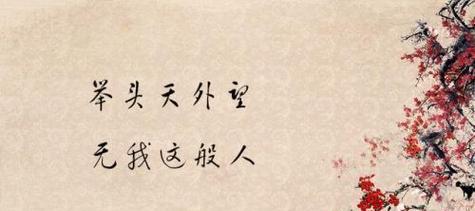 举头天外望
无我这般人